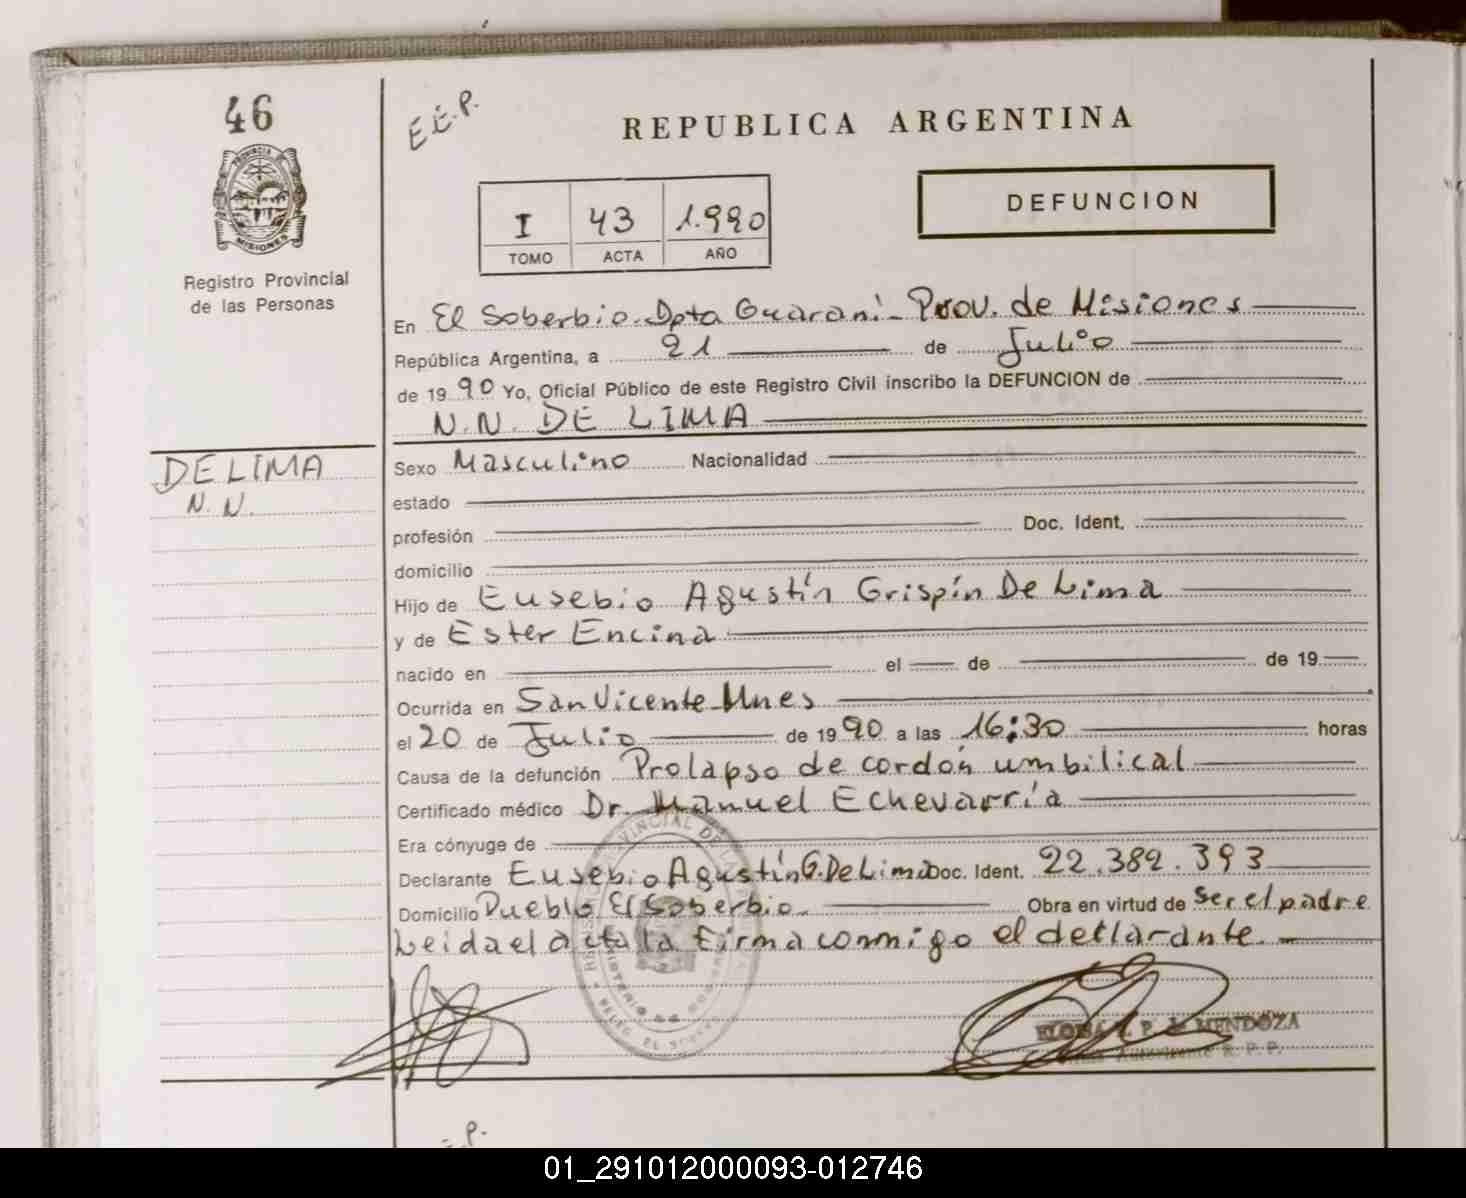 46
E.E.P.
REPUBLICA ARGENTINA
PROVINCIA DE
MISIONES
DEFUNCION
I 43 1.990
TOMO ACTA AÑO
Registro Provincial
de las Personas
En El Soberbio. Dpta Guaraní - Prov. de Misiones
República Argentina, a 21 de Julio
de 1990 Yo, Oficial Público de este Registro Civil inscribo la DEFUNCION de
N.N. DE LIMA
DE LIMA
N. N.
Sexo Masculino Nacionalidad
estado
profesión Doc. Ident.
domicilio
Hijo de Eusebio Agustín Crispín De Lima
y de Ester Encina
nacido en el de de 19
Ocurrida en San Vicente Mnes
el 20 de Julio de 1990 a las 16:30 horas
Causa de la defunción Prolapso de cordón umbilical
Certificado médico Dr. Manuel Echevarría
Era cónyuge de
Declarante Eusebio Agustín G. De Lima Doc. Ident. 22.382.393
Domicilio Pueblo El Soberbio. Obra en virtud de Ser el padre
Leida el acta la firma conmigo el declarante.
P. de MENDOZA
R. P. P.
E.P.
01_291012000093-012746